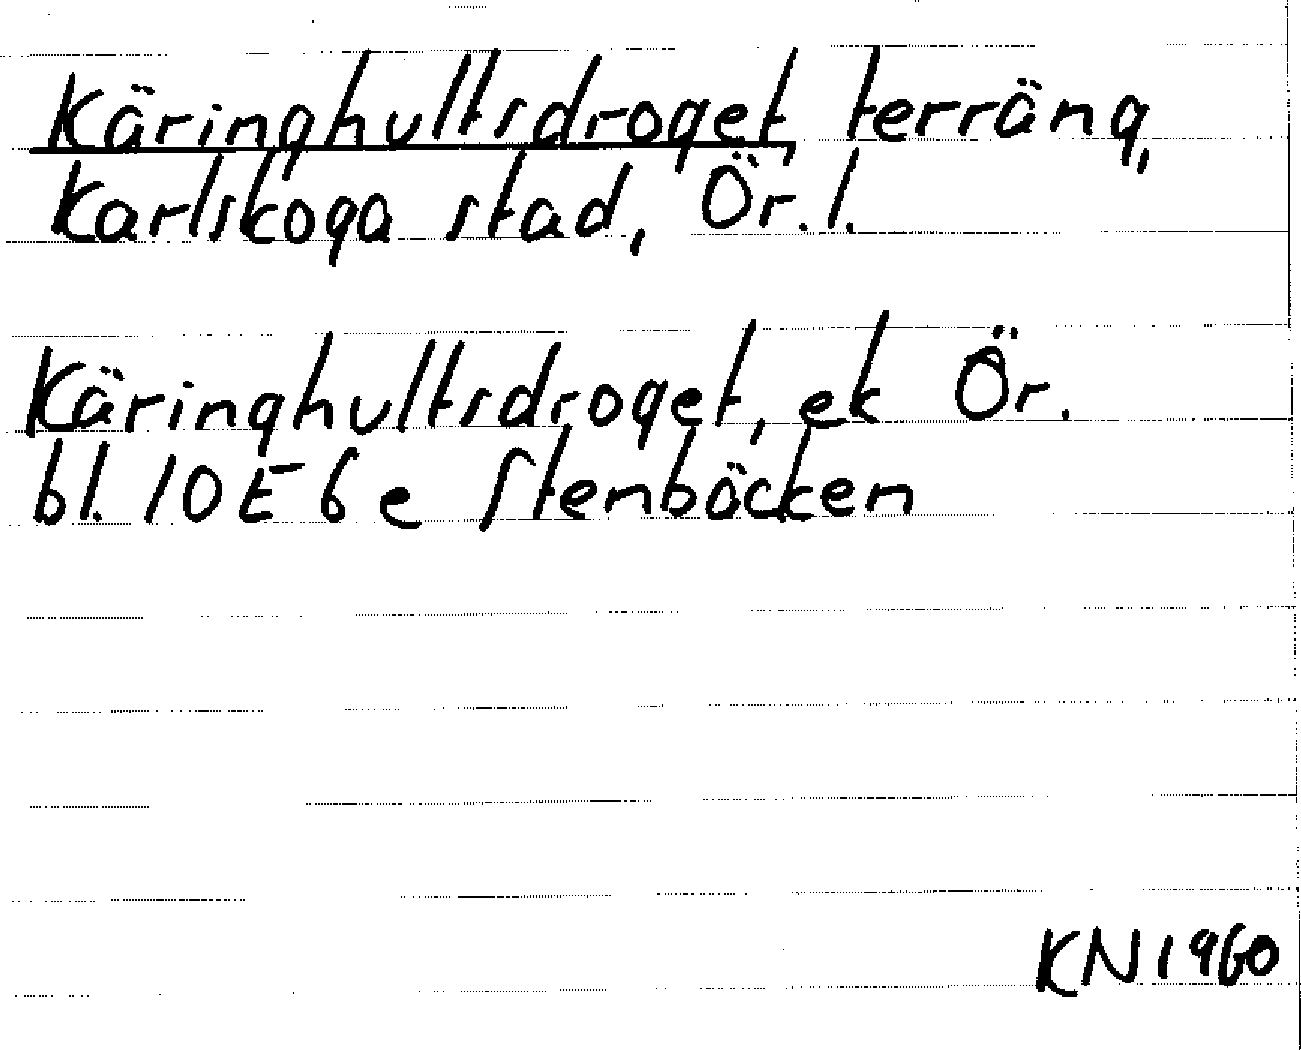 Käringhultsdroget, terräng,
Karlskoga stad, Ör. l.
Käringhultsdroget, ek Ör.
bl. 10E 6e Stenbäcken
KN 1960